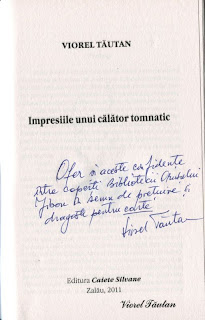 VIOREL TĂUTAN
Impresiile unui călător tomnatic
Ofer și aceste confidente
între coperti Bibliotecii Orașului
Jibou în semn de prețuire și
dragoste pentru carte!
Viorel Tăutan
Editura Caiete Silvane
Zalău, 2011
Viorel Tăutan